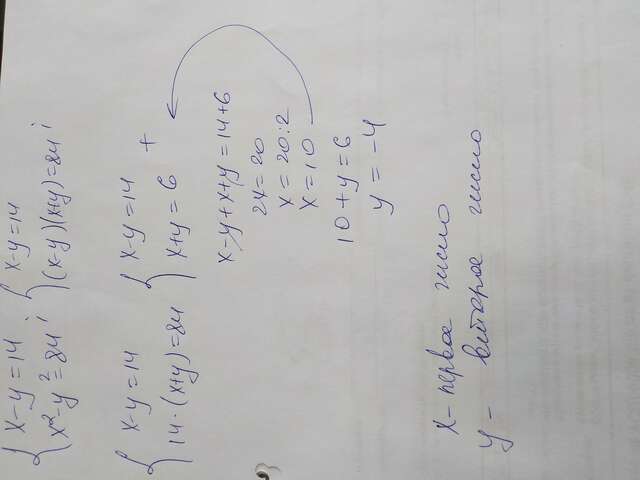 { x-y=14 ; { x-y=14
x²-y²=84 ; (x-y)(x+y)=84 ;
{ x-y=14 { x-y=14
14·(x+y)=84 x+y=6 +
x-y+x+y=14+6
2x=20
x=20:2
x=10
10+y=6
y=-4
x- первое число
y- второе число